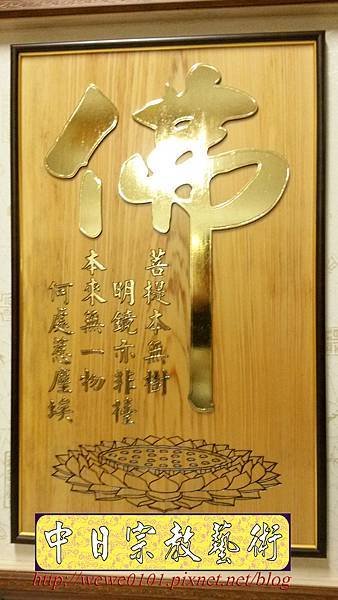 佛
菩提本無樹
明鏡亦非檯
本來無一物
何處惹塵埃
中日宗教藝術
http://wewe0101.pixnet.net/blog